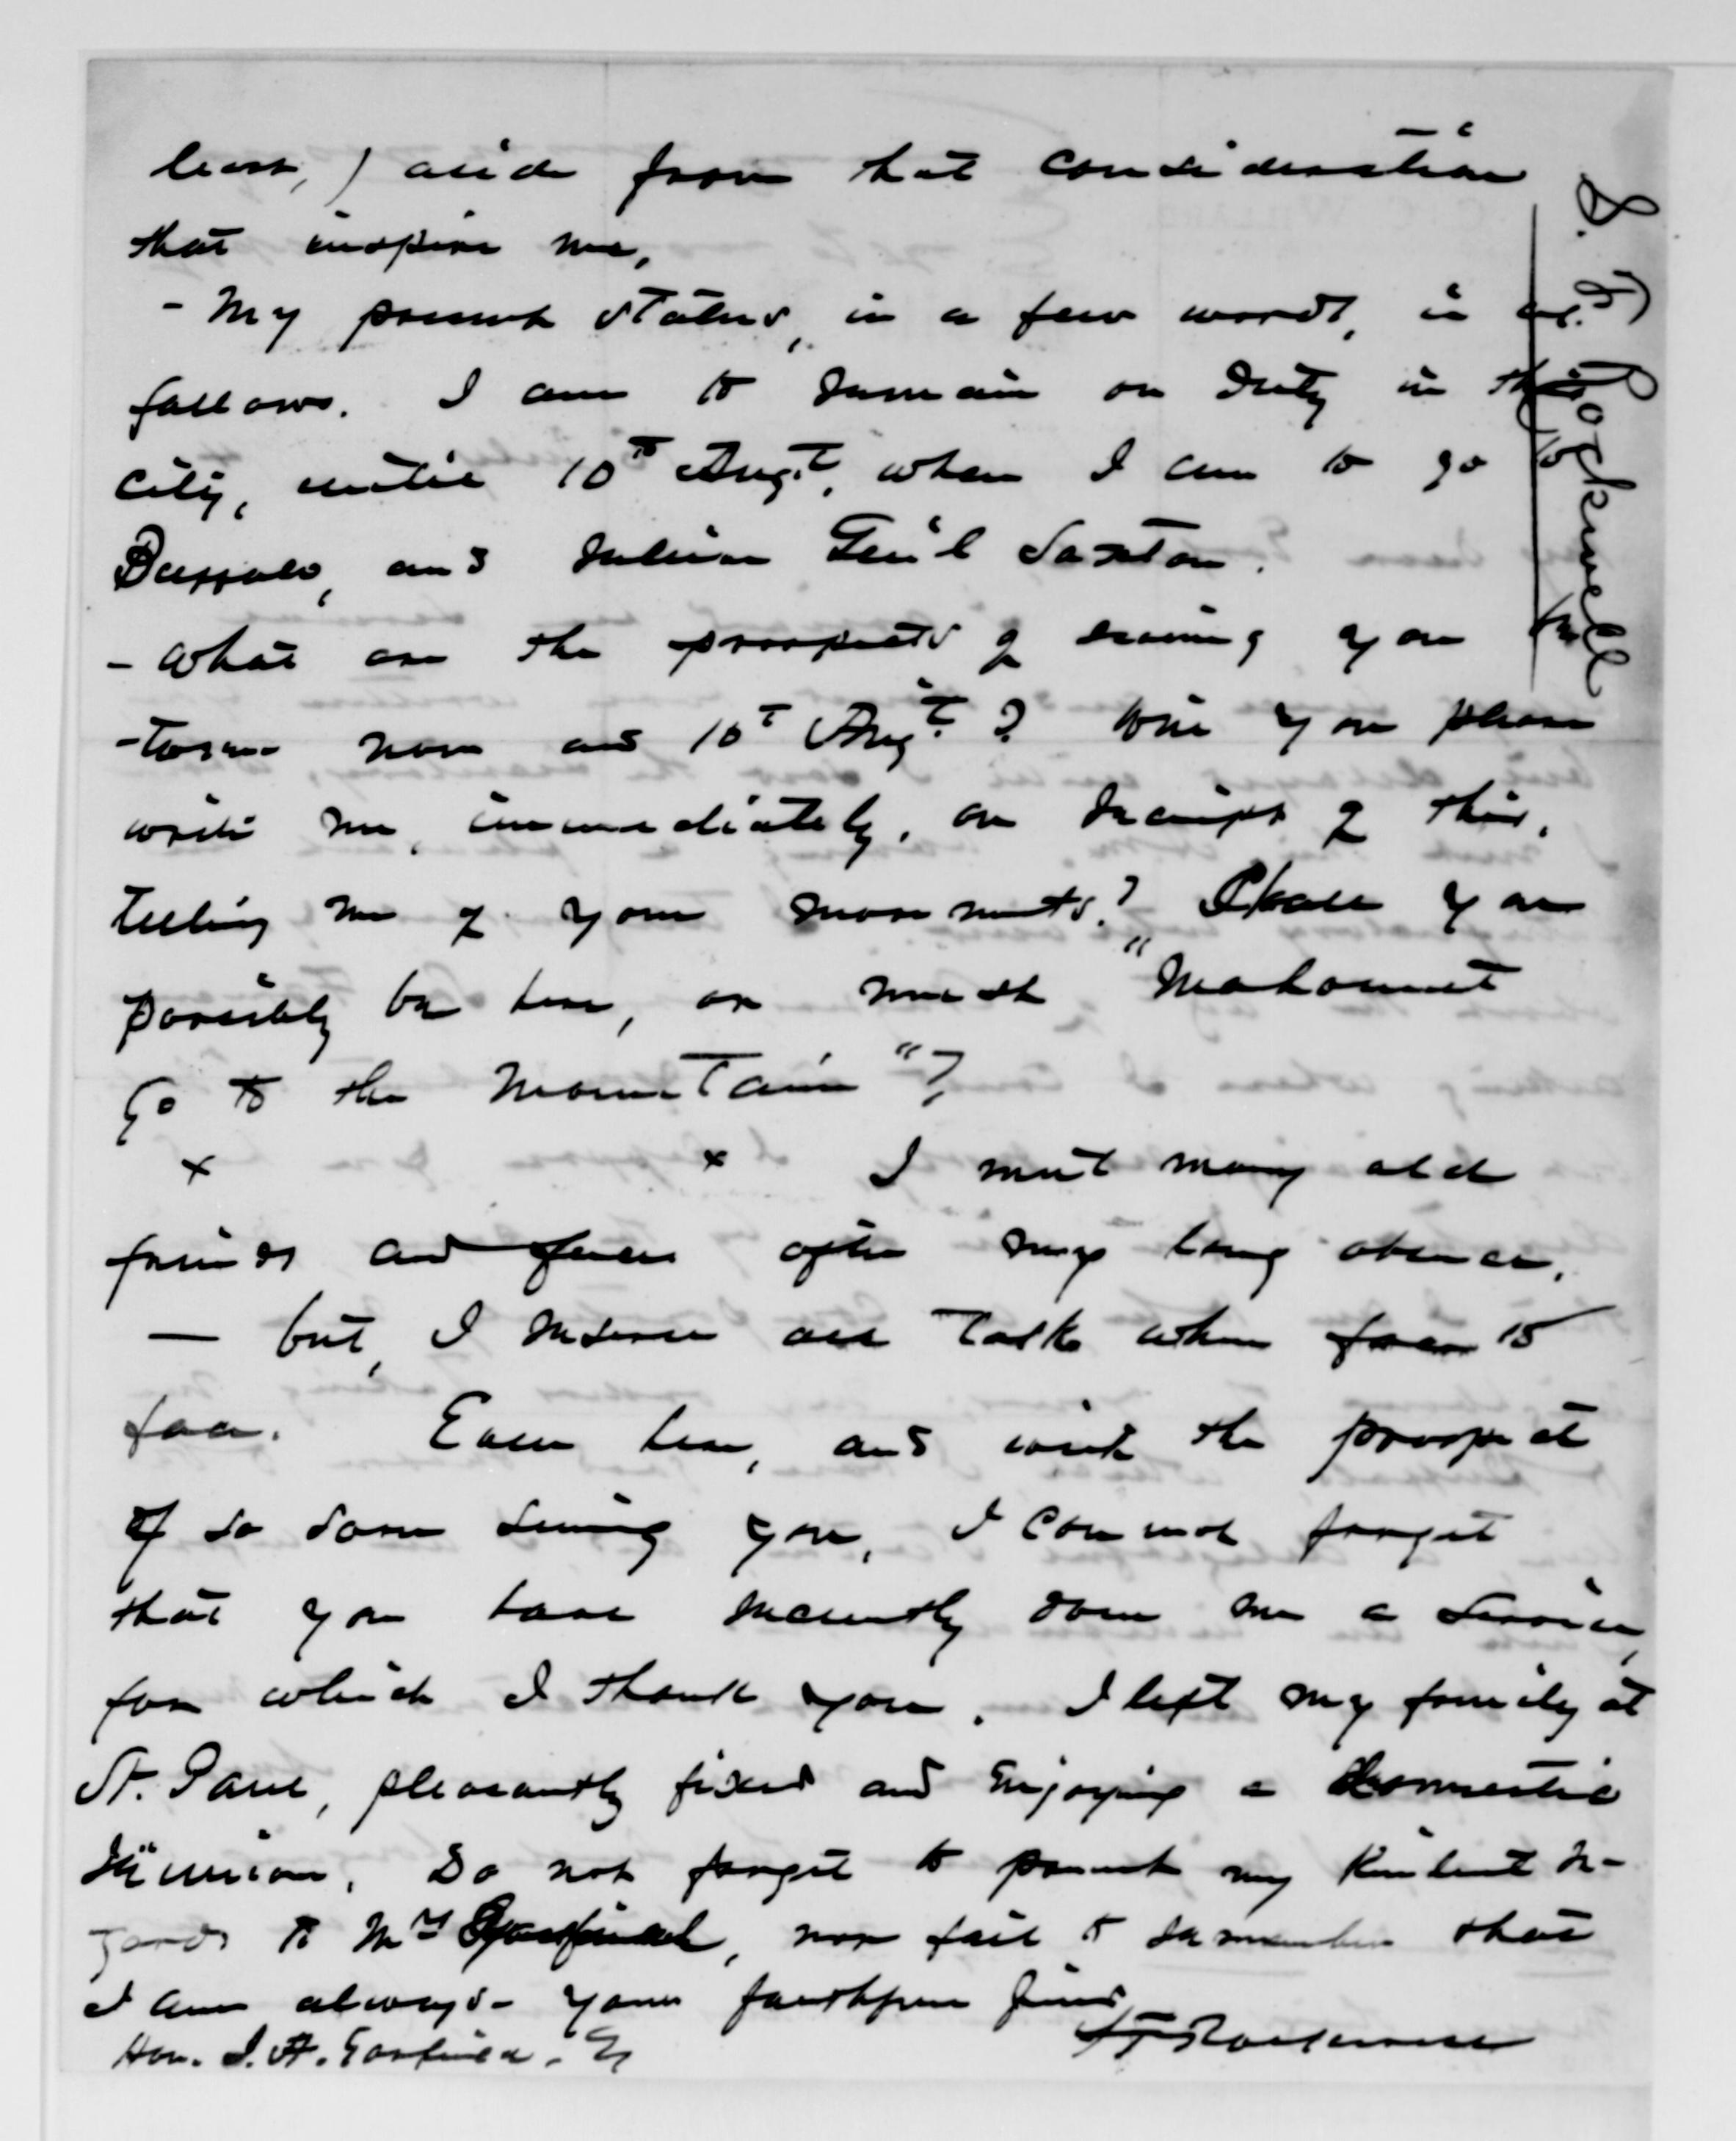 least,) aside from that consideration
that inspires me.
- My present status, in a few words, is as
follows. I am to remain on duty in this
City, until 10th Augt., when I am to go to
Buffalo, and relieve Gen'l Saxton.
- What are the prospects of seeing you be
-tween now and 10th Augt.? Will you please
write me, immediately, on receipt of this,
telling me of your movements? Shall you
possibly be here, or must "Mahomet
go to the Mountain"?
x x I meet many old
friends and faces after my long absence,
— but, I reserve all talk when face to
face. Even here, and with the prospect
of so soon seeing you, I cannot forget
that you have recently done me a service,
for which I thank you. I left my family at
St. Paul, pleasantly fixed and enjoying a domestic
reunion. Do not forget to present my kindest re-
gards to Mrs Garfield, nor fail to remember that
I am always - your faithful friend,
A F Rockwell
Hon. J. A. Garfield.
A. F. Rockwell